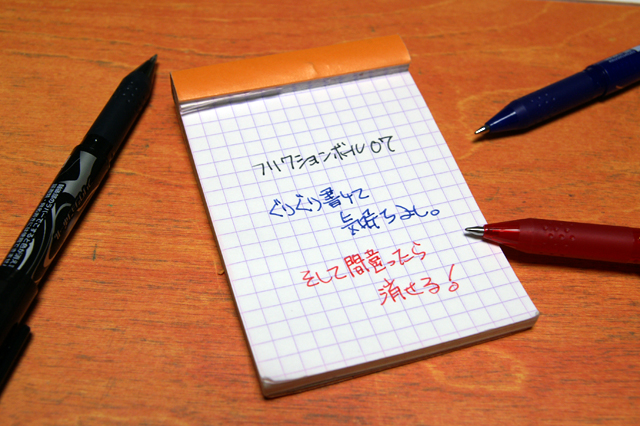 フリクションボール07
ぐりぐり書けて
気持ちよし。
そして間違ったら
消せる!